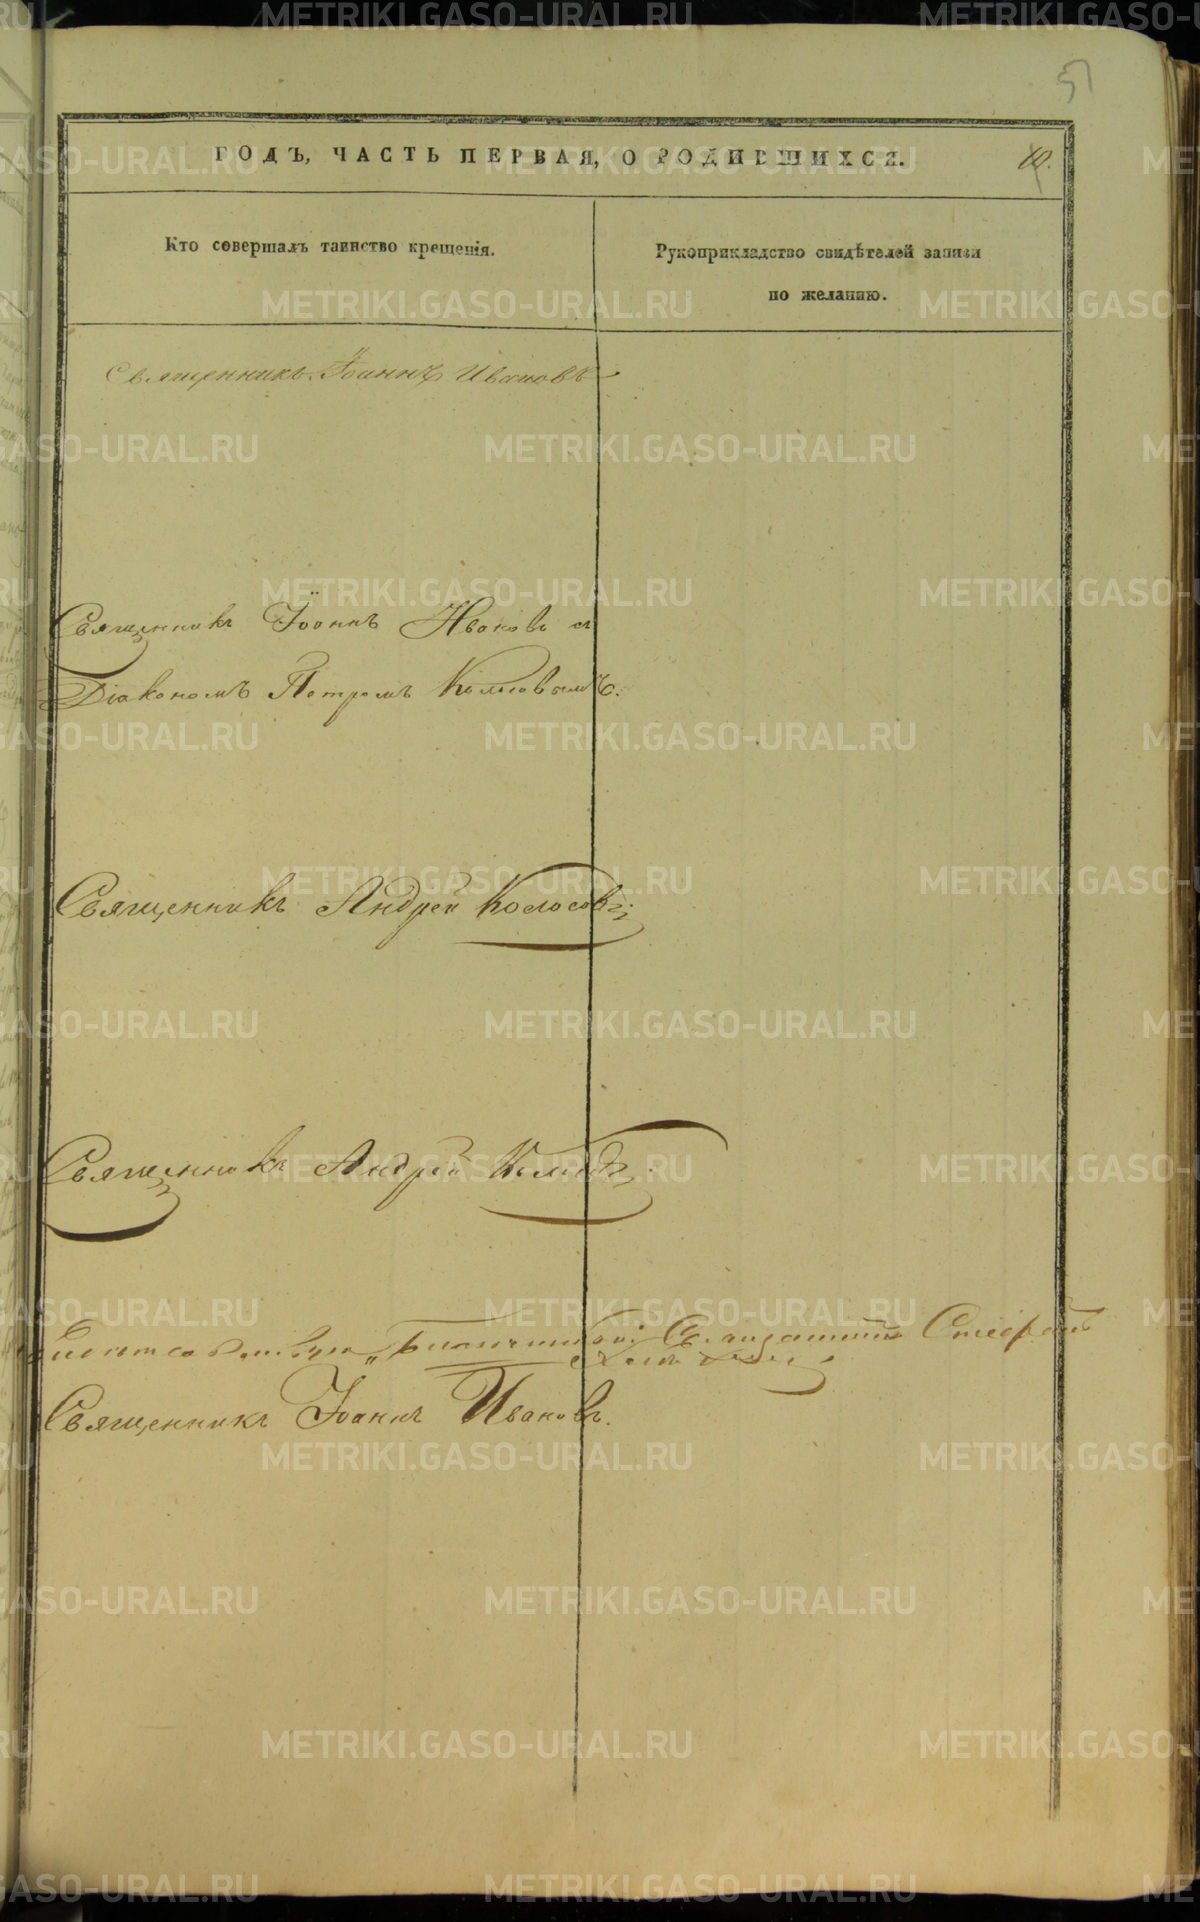 51
ГОДЪ, ЧАСТЬ ПЕРВАЯ, О РОДИВШИХСЯ.
10.
Кто совершалъ таинство крещенія.
Рукоприкладство свидѣтелей записи
по желанію.
Священникъ Іоаннъ Ивановъ
Священникъ Іоаннъ Ивановъ съ
Діакономъ Петромъ Колосовымъ.
Священникъ Андрей Колосовъ
Священникъ Андрей Колосовъ
Священникъ Іоаннъ Ивановъ.
METRIKI.GASO-URAL.RU